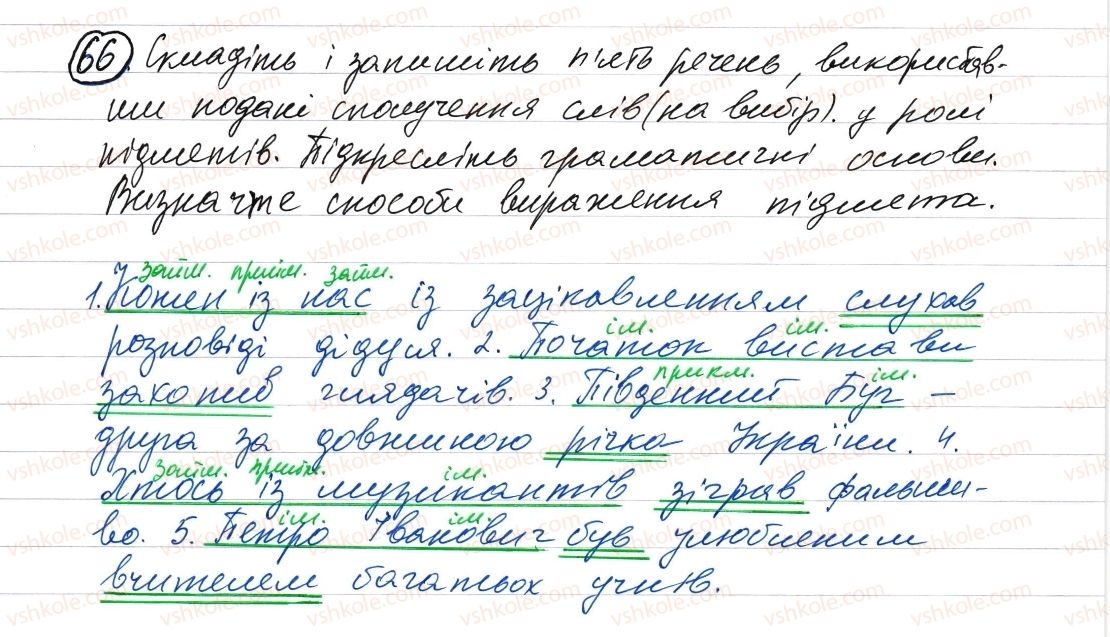 66. Складіть і запишіть п'ять речень, використав-
ши подані сполучення слів (на вибір). у ролі
підметів. Підкресліть граматичні основи.
Визначте способи вираження підмета.
займ. прийм. займ.
1. Кожен із нас із зацікавленням слухав
ім. ім.
розповіді дідуся. 2. Початок вистави
прикм. ім.
захопив глядачів. 3. Південний Буг –
друга за довжиною річка України. 4.
займ. прийм. ім.
Хтось із музикантів зіграв фальши-
ім. ім.
во. 5. Петро Іванович був улюбленим
вчителем багатьох учнів.